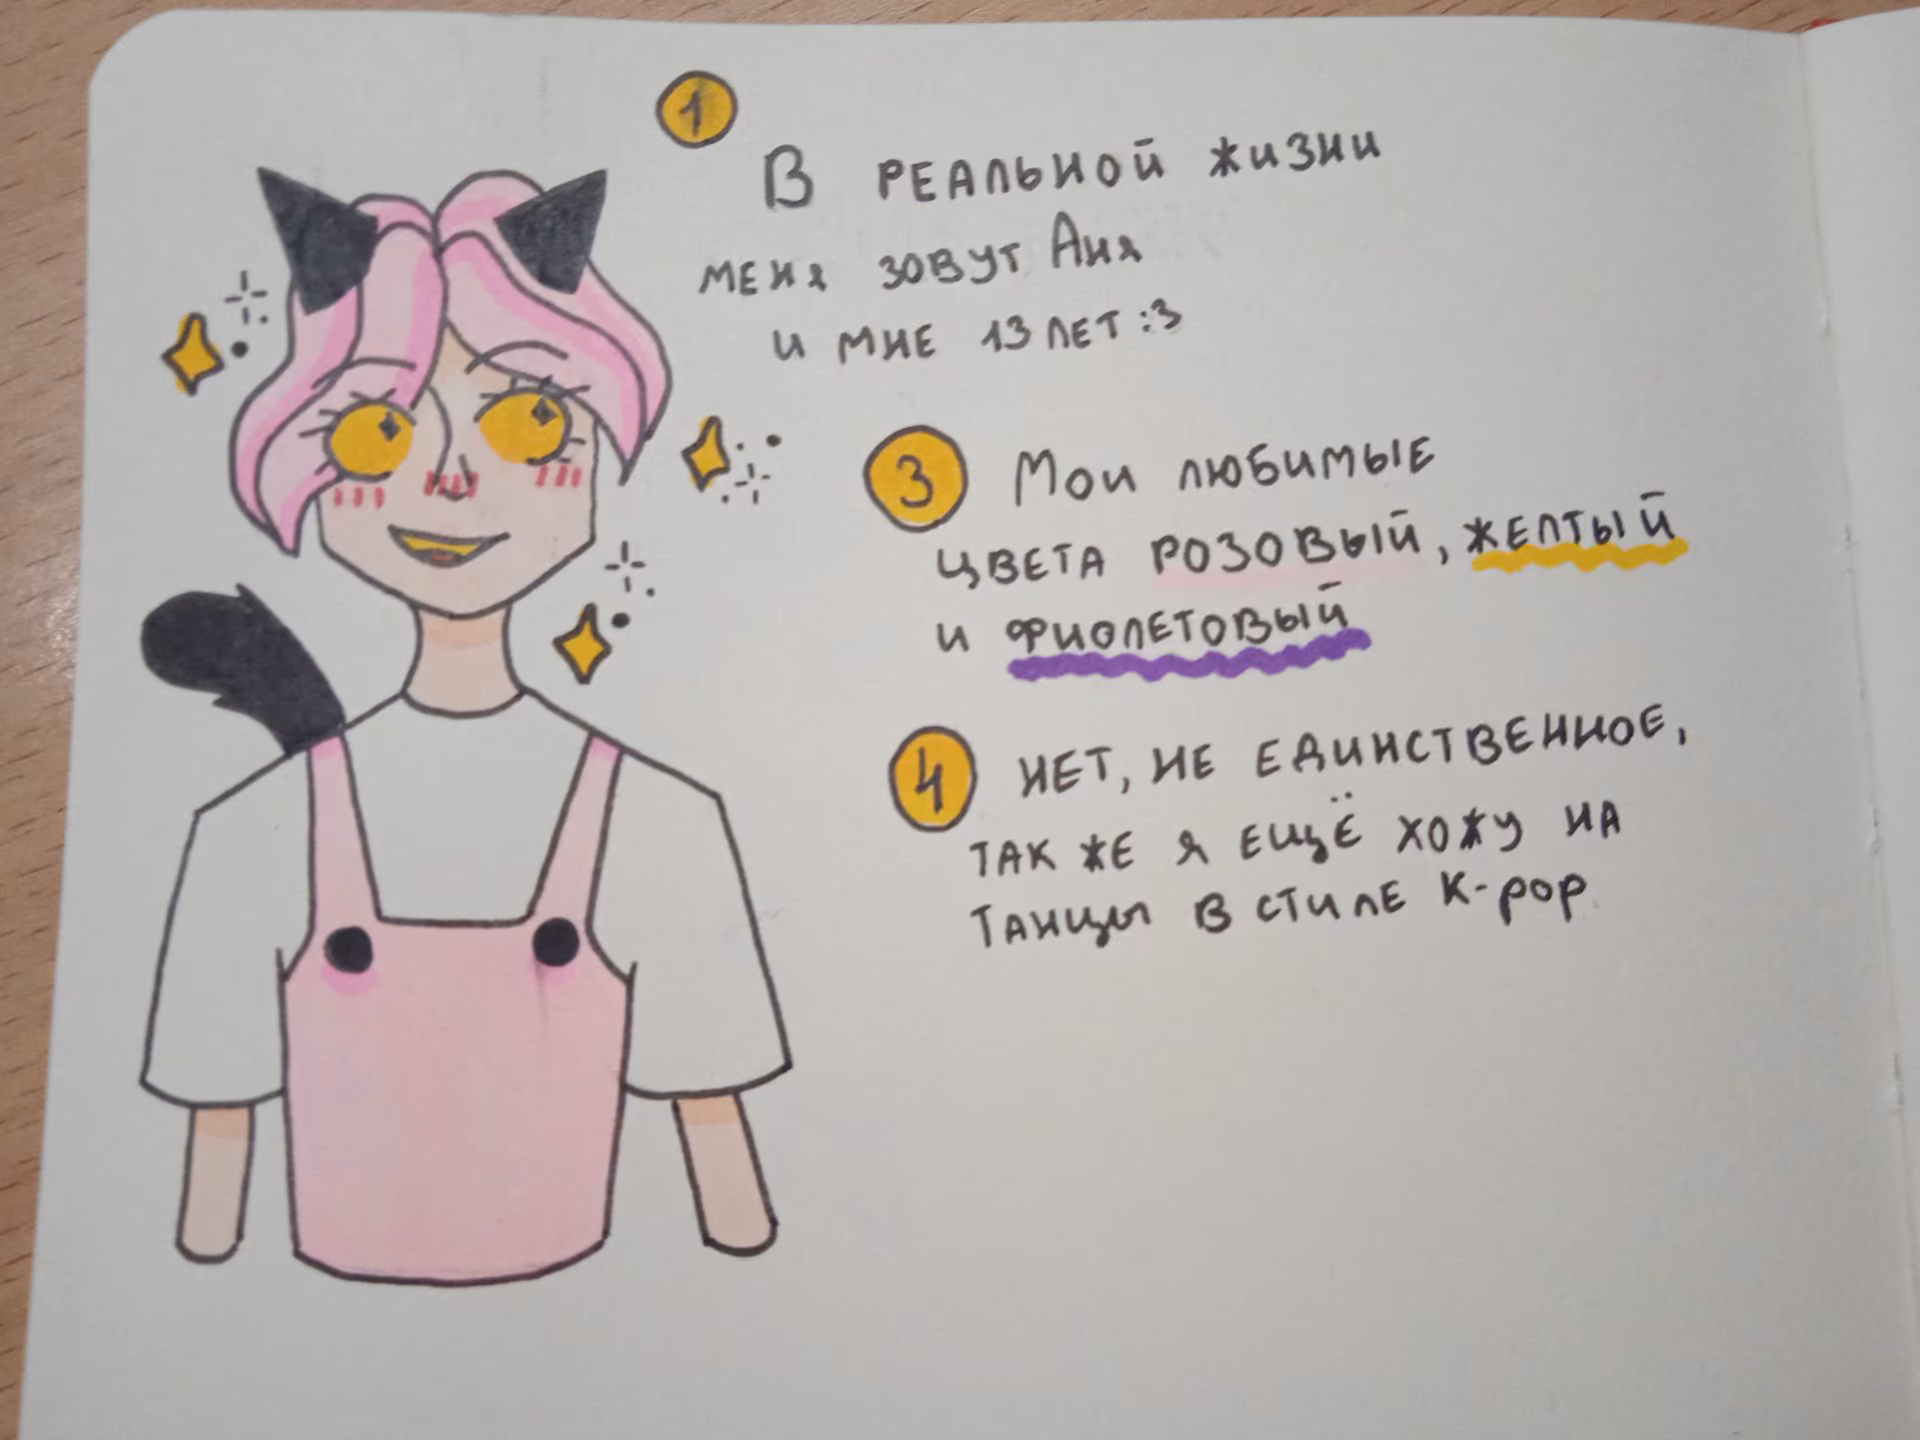 1
В РЕАЛЬНОЙ ЖИЗНИ
МЕНЯ ЗОВУТ АНЯ
И МНЕ 13 ЛЕТ :3
3 МОИ ЛЮБИМЫЕ
ЦВЕТА РОЗОВЫЙ, ЖЕЛТЫЙ
И ФИОЛЕТОВЫЙ
4 НЕТ, НЕ ЕДИНСТВЕННОЕ,
ТАК ЖЕ Я ЕЩЁ ХОЖУ НА
ТАНЦЫ В СТИЛЕ K-pop